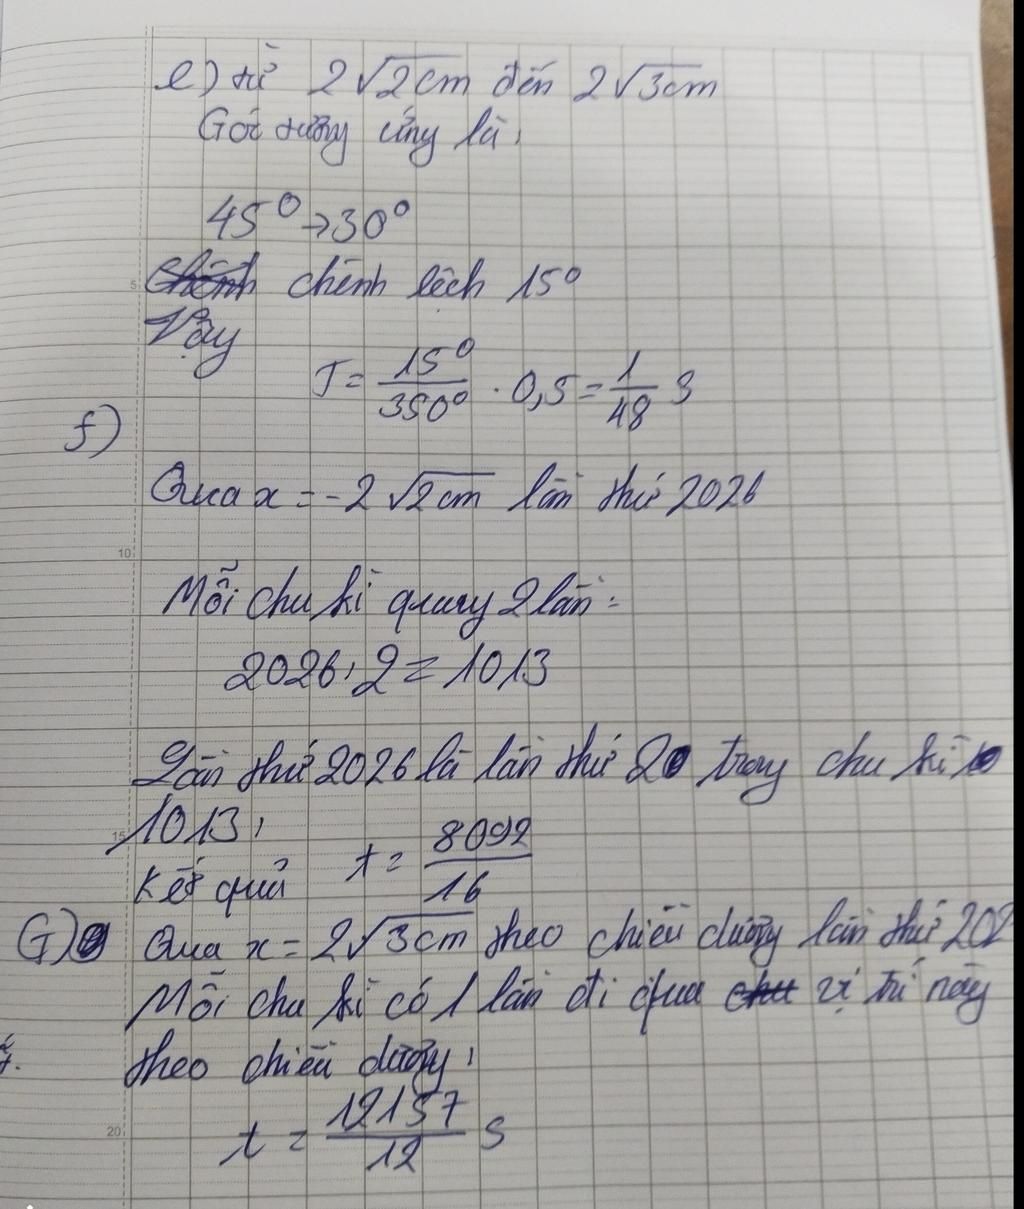 e) từ 2√2cm đến 2√3cm
Góc tương ứng là:
45° → 30°
chênh lệch 15°
Vậy
T = 15°/350° . 0,5 = 1/48 s
f)
Qua x = -2√2cm lần thứ 2026
Mỗi chu kì quay 2 lần:
2026:2 = 1013
Lần thứ 2026 là lần thứ 2 trong chu kì
1013,
Kết quả t = 8092/16
G) Qua x = 2√3cm theo chiều dương lần thứ 202
Mỗi chu kì có 1 lần đi qua vị trí này
theo chiều dương,
t = 12157/12 s